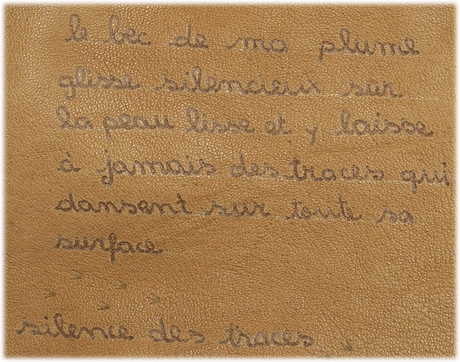 le bec de ma plume
glisse silencieux sur
la peau lisse et y laisse
à jamais des traces qui
dansent sur toute sa
surface
silence des traces